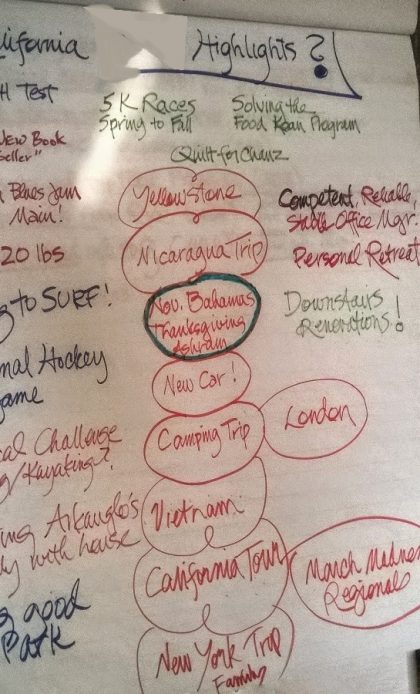 California
Highlights?
H Test
5K Races
Spring to Fall
Solving the
Food Program
New Book
Seller"
Quilt for
Blues Jam
Main!
Yellowstone
Competent, Reliable,
Stable Office Mgr.
20 lbs
Nicaragua Trip
Personal Retreat
to SURF!
Nov. Bahamas
Thanksgiving
Ashram
Downstairs
Renovations!
Hockey
game
New Car!
London
Challenge
/Kayaking?
Camping Trip
Vietnam
with house
California Town
March Madness
Regionals
good
Park
New York Trip
Family